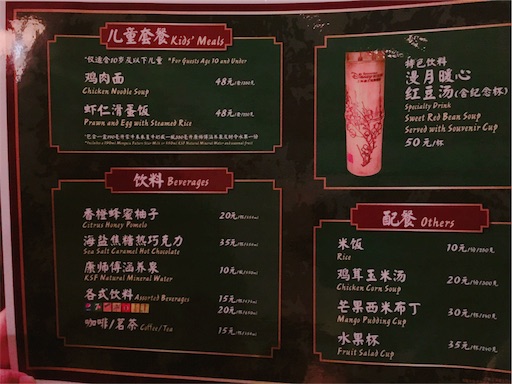 儿童套餐 Kids' Meals
*仅适合10岁及以下儿童 *For Guests Age 10 and Under
鸡肉面 48元/套/500克
Chicken Noodle Soup
虾仁滑蛋饭 48元/套
Prawn and Egg with Steamed Rice
特色饮料
漫月暖心
红豆汤(含纪念杯)
Specialty Drink
Sweet Red Bean Soup
Served with Souvenir Cup
50元/杯
饮料 Beverages
香橙蜂蜜柚子 20元/杯
Citrus Honey Pomelo
海盐焦糖热巧克力 35元/杯
Sea Salt Caramel Hot Chocolate
康师傅涵养泉 10元/瓶
KSF Natural Mineral Water
各式饮料 Assorted Beverages 15元/杯
20元/瓶
咖啡/茗茶 Coffee/Tea 15元/杯
配餐 Others
米饭 10元
Rice
鸡茸玉米汤 20元
Chicken Corn Soup
芒果西米布丁 30元
Mango Pudding Cup
水果杯 35元
Fruit Salad Cup